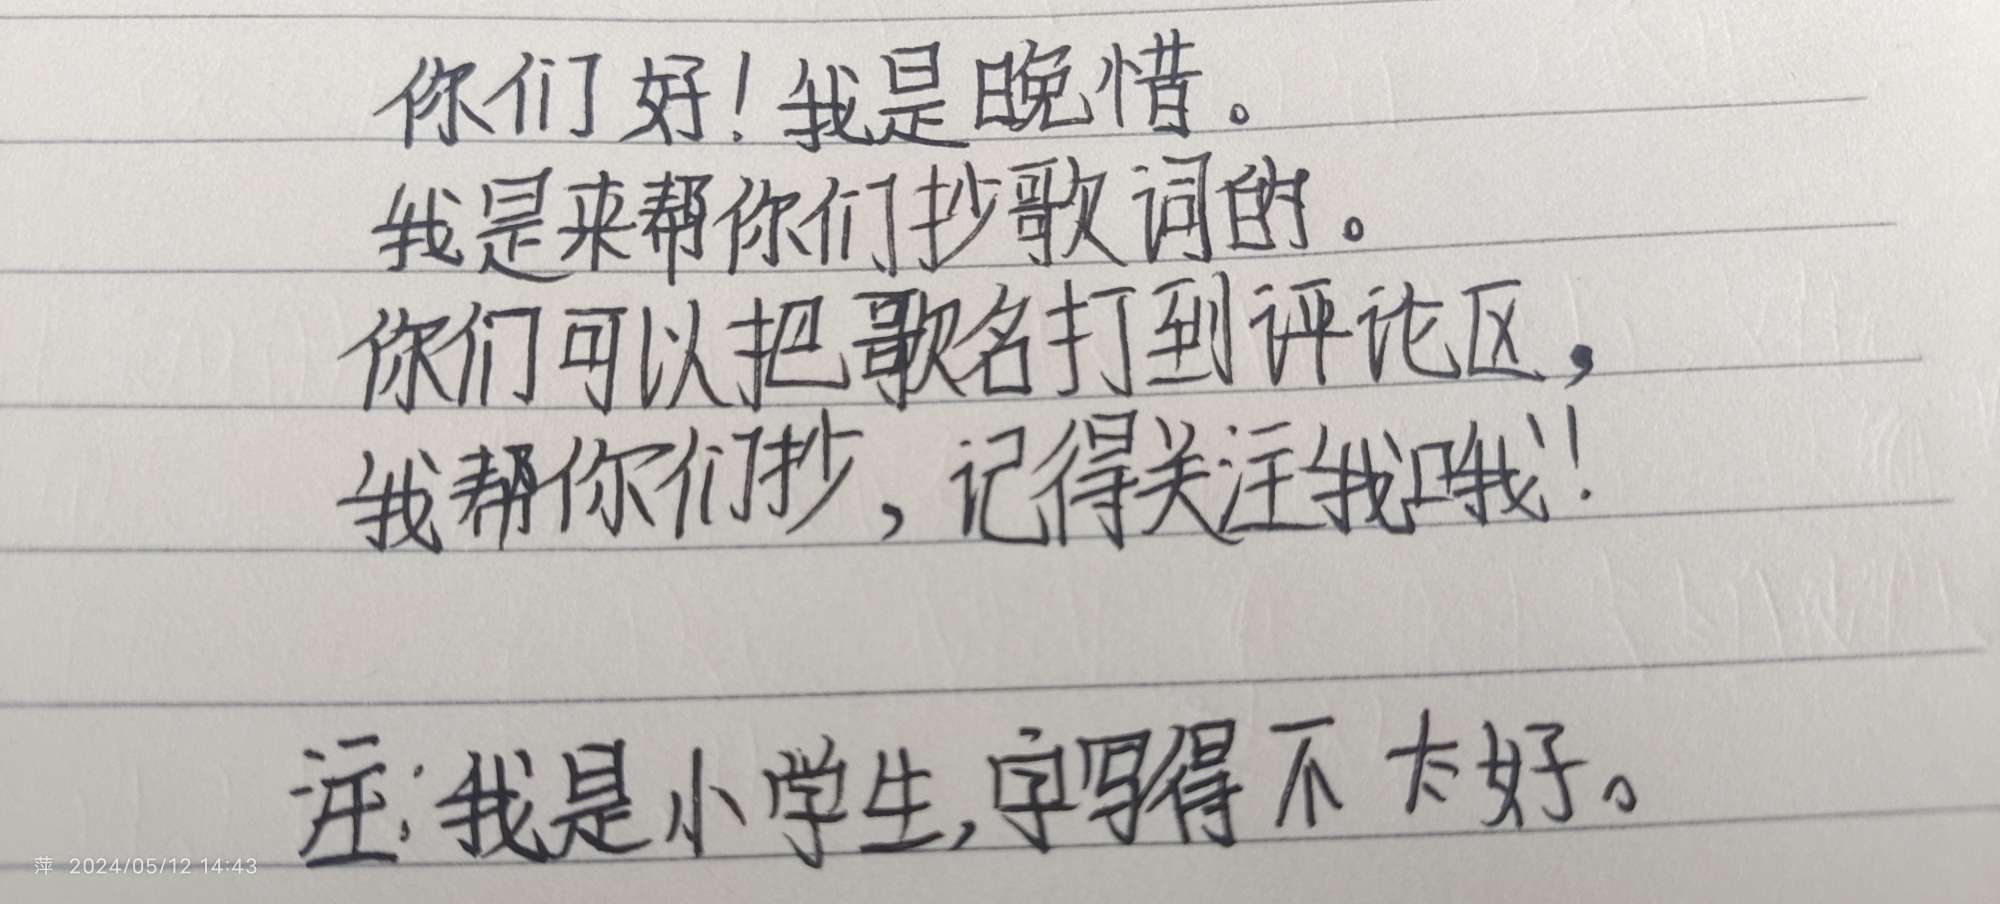 你们好！我是晚惜。
我是来帮你们抄歌词的。
你们可以把歌名打到评论区，
我帮你们抄，记得关注我哦！
注：我是小学生，字写得不太好。
萍 2024/05/12 14:43